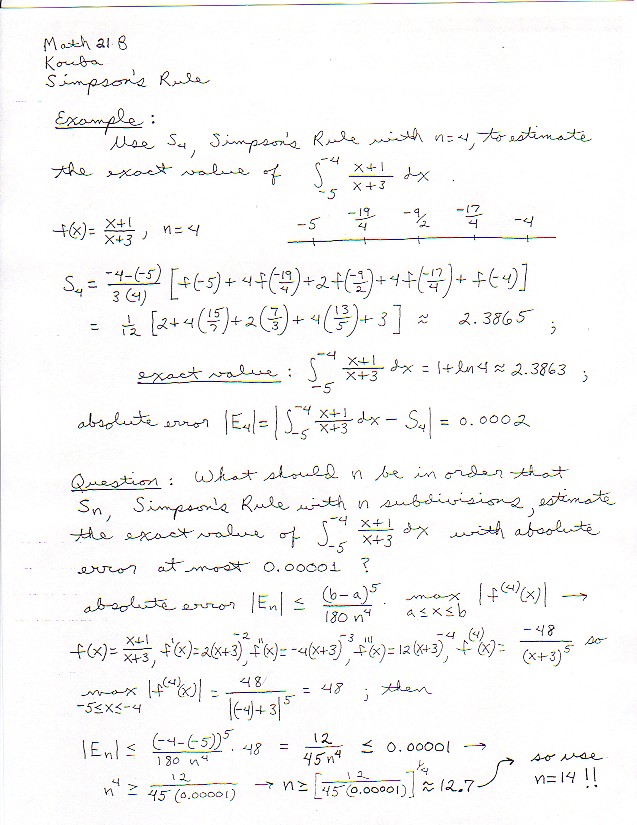 Math 21B
Kouba
Simpson's Rule
Example:
Use S₄, Simpson's Rule with n=4, to estimate
the exact value of ∫_{-5}^{-4} (x+1)/(x+3) dx .
f(x)= (x+1)/(x+3), n=4
-5 -19/4 -9/2 -17/4 -4
S₄ = (-4-(-5))/(3(4)) [f(-5) + 4f(-19/4) + 2f(-9/2) + 4f(-17/4) + f(-4)]
= 1/12 [2+4(15/7)+2(7/3)+4(13/5)+3] ≈ 2.3865 ;
exact value : ∫_{-5}^{-4} (x+1)/(x+3) dx = 1+ln 4 ≈ 2.3863 ;
absolute error |E₄|=|∫_{-5}^{-4} (x+1)/(x+3) dx - S₄| = 0.0002
Question : What should n be in order that
Sₙ, Simpson's Rule with n subdivisions, estimate
the exact value of ∫_{-5}^{-4} (x+1)/(x+3) dx with absolute
error at most 0.00001 ?
absolute error |Eₙ| ≤ (b-a)⁵/(180 n⁴) · max_{a≤x≤b} |f⁽⁴⁾(x)| →
f(x)= (x+1)/(x+3), f'(x)=2(x+3)⁻², f''(x)=-4(x+3)⁻³, f'''(x)=12(x+3)⁻⁴, f⁽⁴⁾(x)= -48/(x+3)⁵ so
max_{-5≤x≤-4} |f⁽⁴⁾(x)| = 48/|(-4)+3|⁵ = 48 ; then
|Eₙ| ≤ (-4-(-5))⁵/(180 n⁴) · 48 = 12/(45n⁴) ≤ 0.00001 →
n⁴ ≥ 12/(45(0.00001)) → n ≥ [12/(45(0.00001))]^{1/4} ≈ 12.7 → so use
n=14 !!